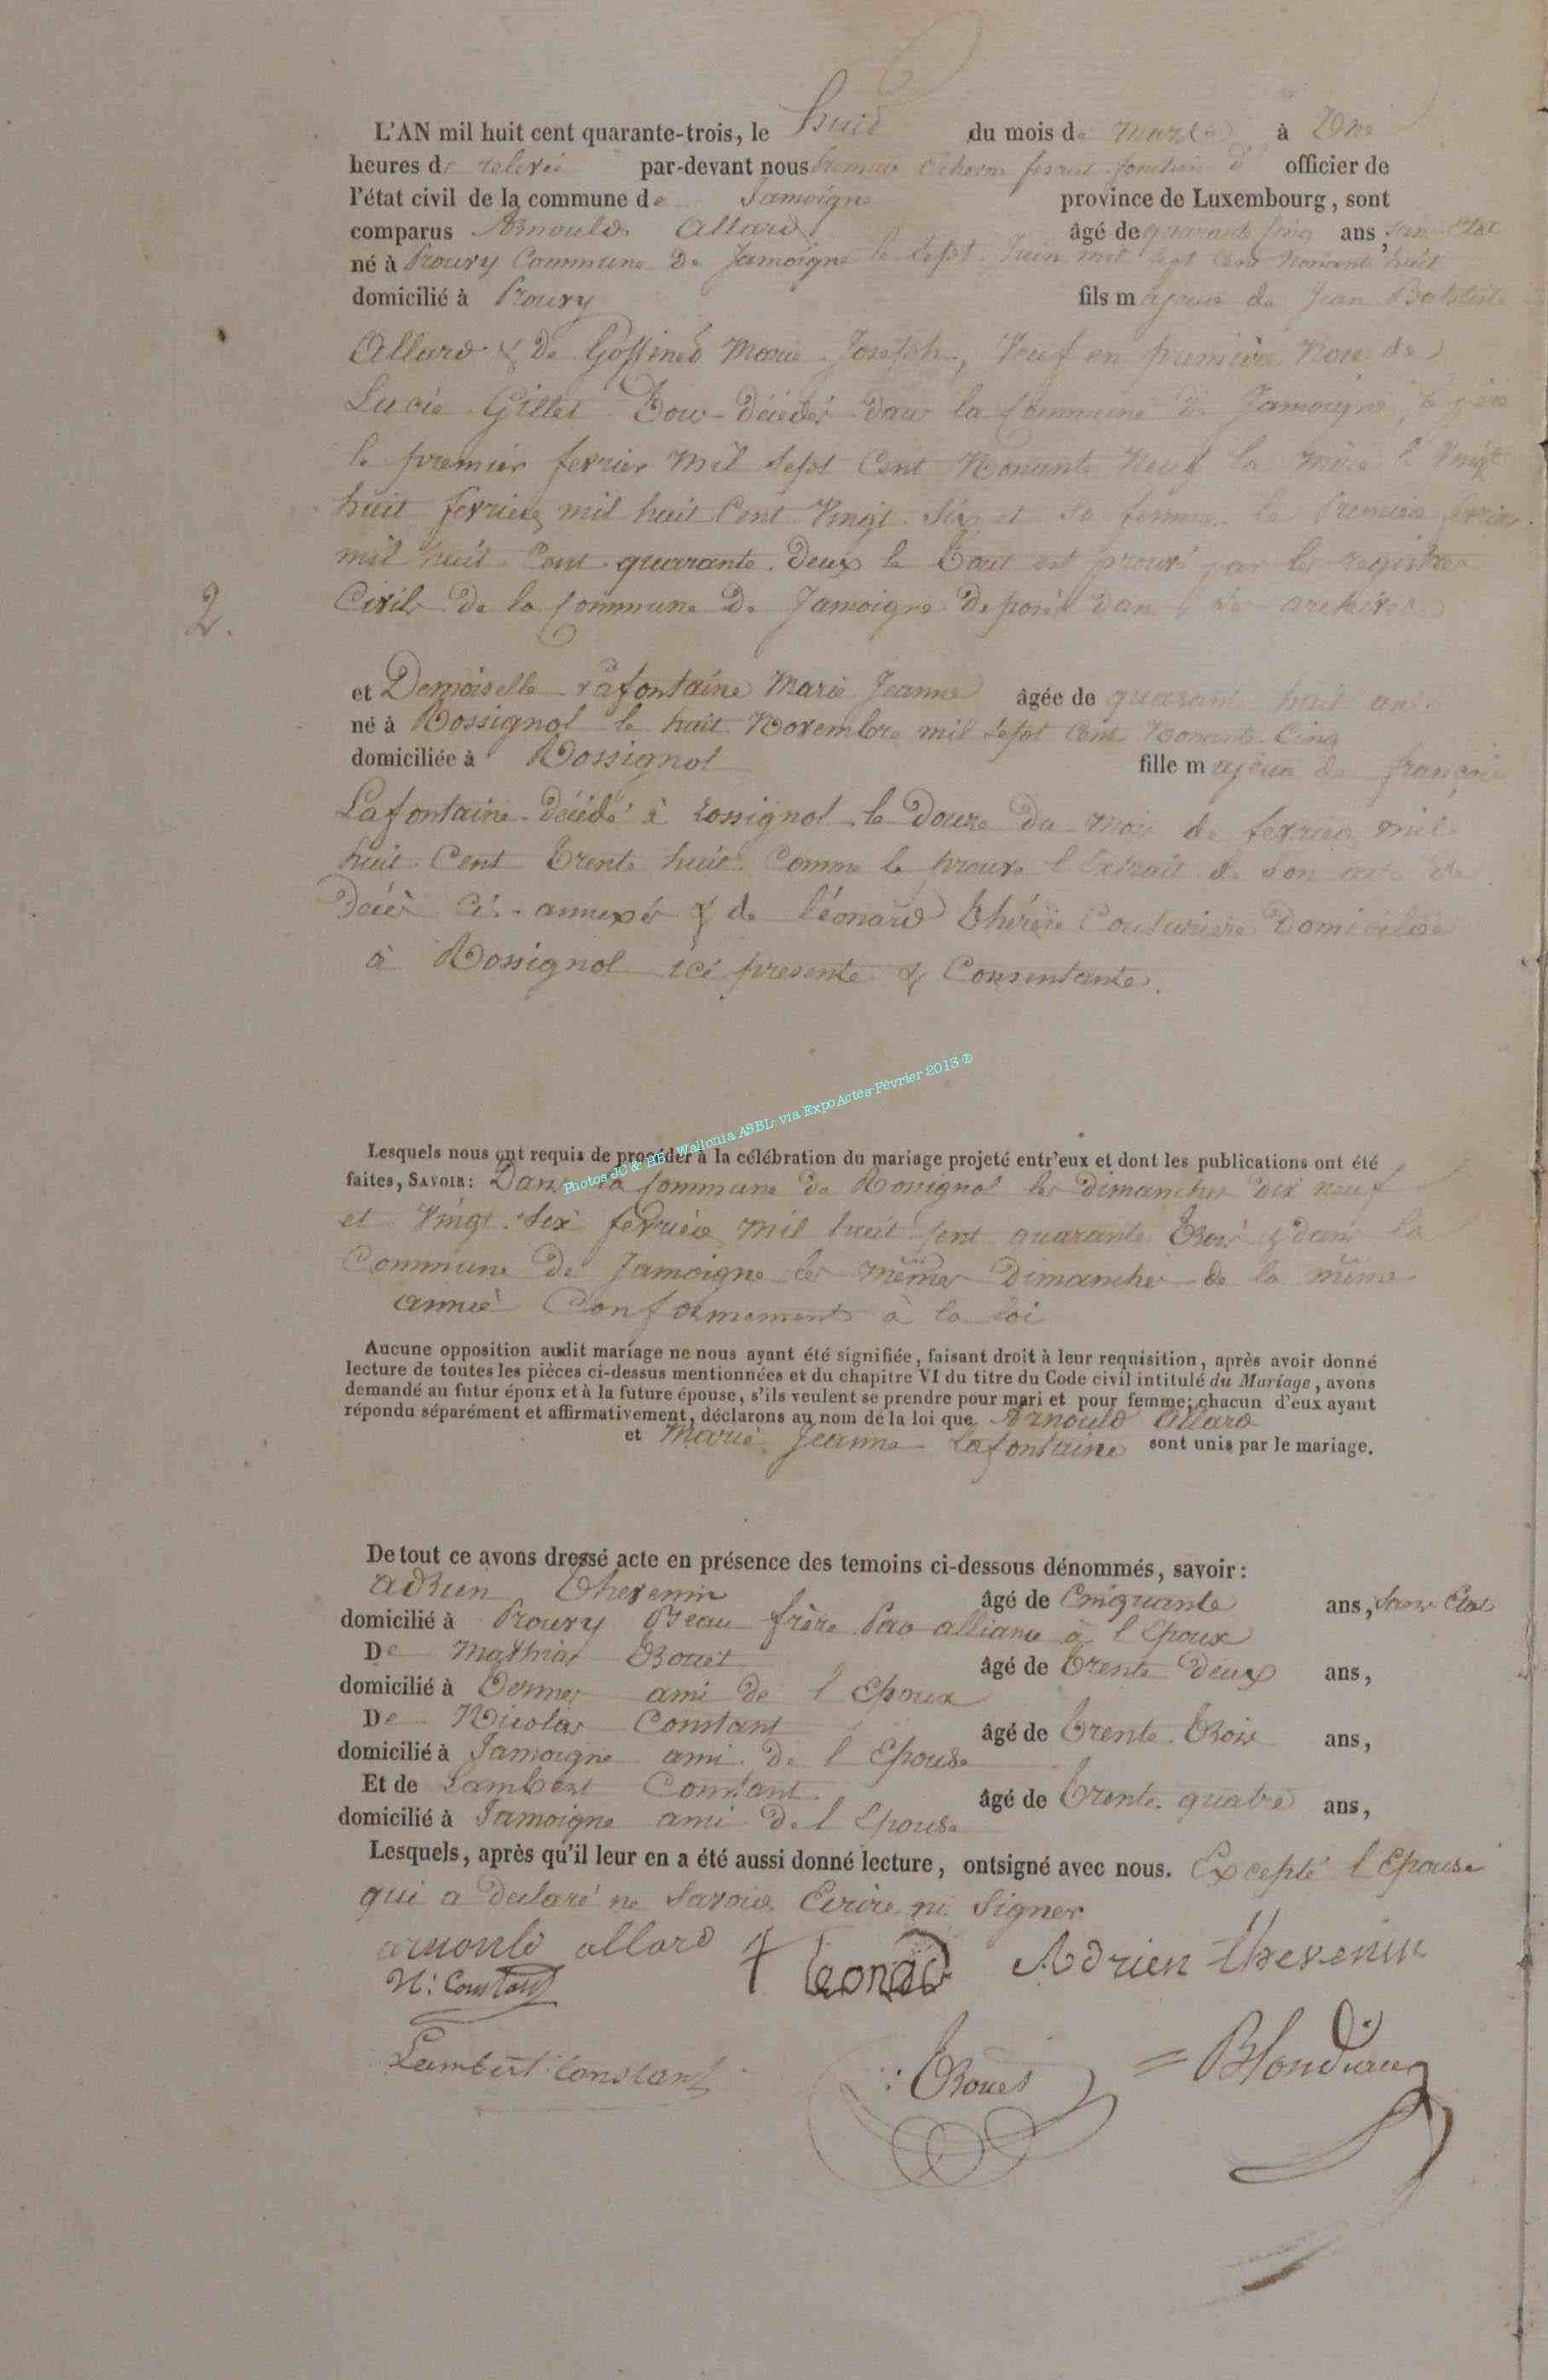 L'AN mil huit cent quarante-trois, le huit du mois de Mars à Une
heures de relevée par-devant nous premier Echevin fesant fonction d' officier de
l'état civil de la commune de Jamoigne province de Luxembourg, sont
comparus Arnould Allard âgé de quarante cinq ans, sans Etat
né à Prouvy Commune de Jamoigne le Sept Juin mil Sept Cent Nonante huit
domicilié à Prouvy fils majeur de Jean Batiste
Allard & de Goffinet Marie Joseph, Veuf en première Noce de
Lucie Gillet Tous Décédés dans la Commune de Jamoigne, le père
le premier fevrier Mil Sept Cent Nonante Neuf la mère le Vingt
huit fevrier mil huit Cent Vingt Six et sa femme le Premier fevrier
mil huit Cent quarante Deux le Tout est prouvé par les registres
2.
Civils De la Commune De Jamoigne Déposés dans les archives
et Demoiselle Lafontaine Marie Jeanne âgée de quarante huit ans
né à Rossignol le huit Novembre mil Sept Cent Nonante Cinq
domiciliée à Rossignol fille majeure de françois
Lafontaine Décédé à Rossignol le Douze Du Mois de fevrier mil
huit Cent Trente huit Comme le prouve l'Extrait de son acte de
Décès Ci-annexé & de léonard Thérèse Couturière Domiciliée
à Rossignol ici presente & Consentante.
Photos JC & HB Wallonia ASBL via ExpoActes-Février 2013 ®
Lesquels nous ont requis de procéder à la célébration du mariage projeté entr'eux et dont les publications ont été
faites, SAVOIR: Dans la Commune de Rossignol les Dimanches dix neuf
et Vingt Six fevrier Mil huit Cent quarante Trois & dans la
Commune De Jamoigne les mêmes Dimanches de la même
année Conformement à la loi
Aucune opposition audit mariage ne nous ayant été signifiée, faisant droit à leur requisition, après avoir donné
lecture de toutes les pièces ci-dessus mentionnées et du chapitre VI du titre du Code civil intitulé du Mariage, avons
demandé au futur époux et à la future épouse, s'ils veulent se prendre pour mari et pour femme; chacun d'eux ayant
répondu séparément et affirmativement, déclarons au nom de la loi que Arnould Allard
et Marie Jeanne Lafontaine sont unis par le mariage.
De tout ce avons dressé acte en présence des temoins ci-dessous dénommés, savoir:
Adrien Thevenin âgé de Cinquante ans, sans Etat
domicilié à Prouvy Beau frère Par alliance à l'Epoux
De Mathias Bouet âgé de Trente Deux ans,
domicilié à ami de l'Epoux
De Nicolas Constant âgé de Trente Trois ans,
domicilié à Jamoigne ami De l'Epouse
Et de Lambert Constant âgé de Trente quatre ans,
domicilié à Jamoigne ami De l'Epouse
Lesquels, après qu'il leur en a été aussi donné lecture, ontsigné avec nous. Excepté l'Epouse
qui a Declaré ne Savoir Ecrire ni Signer
arnould allard t leonard Adrien thevenin
N: Constant
Lambert Constant Bouet Blondiaux